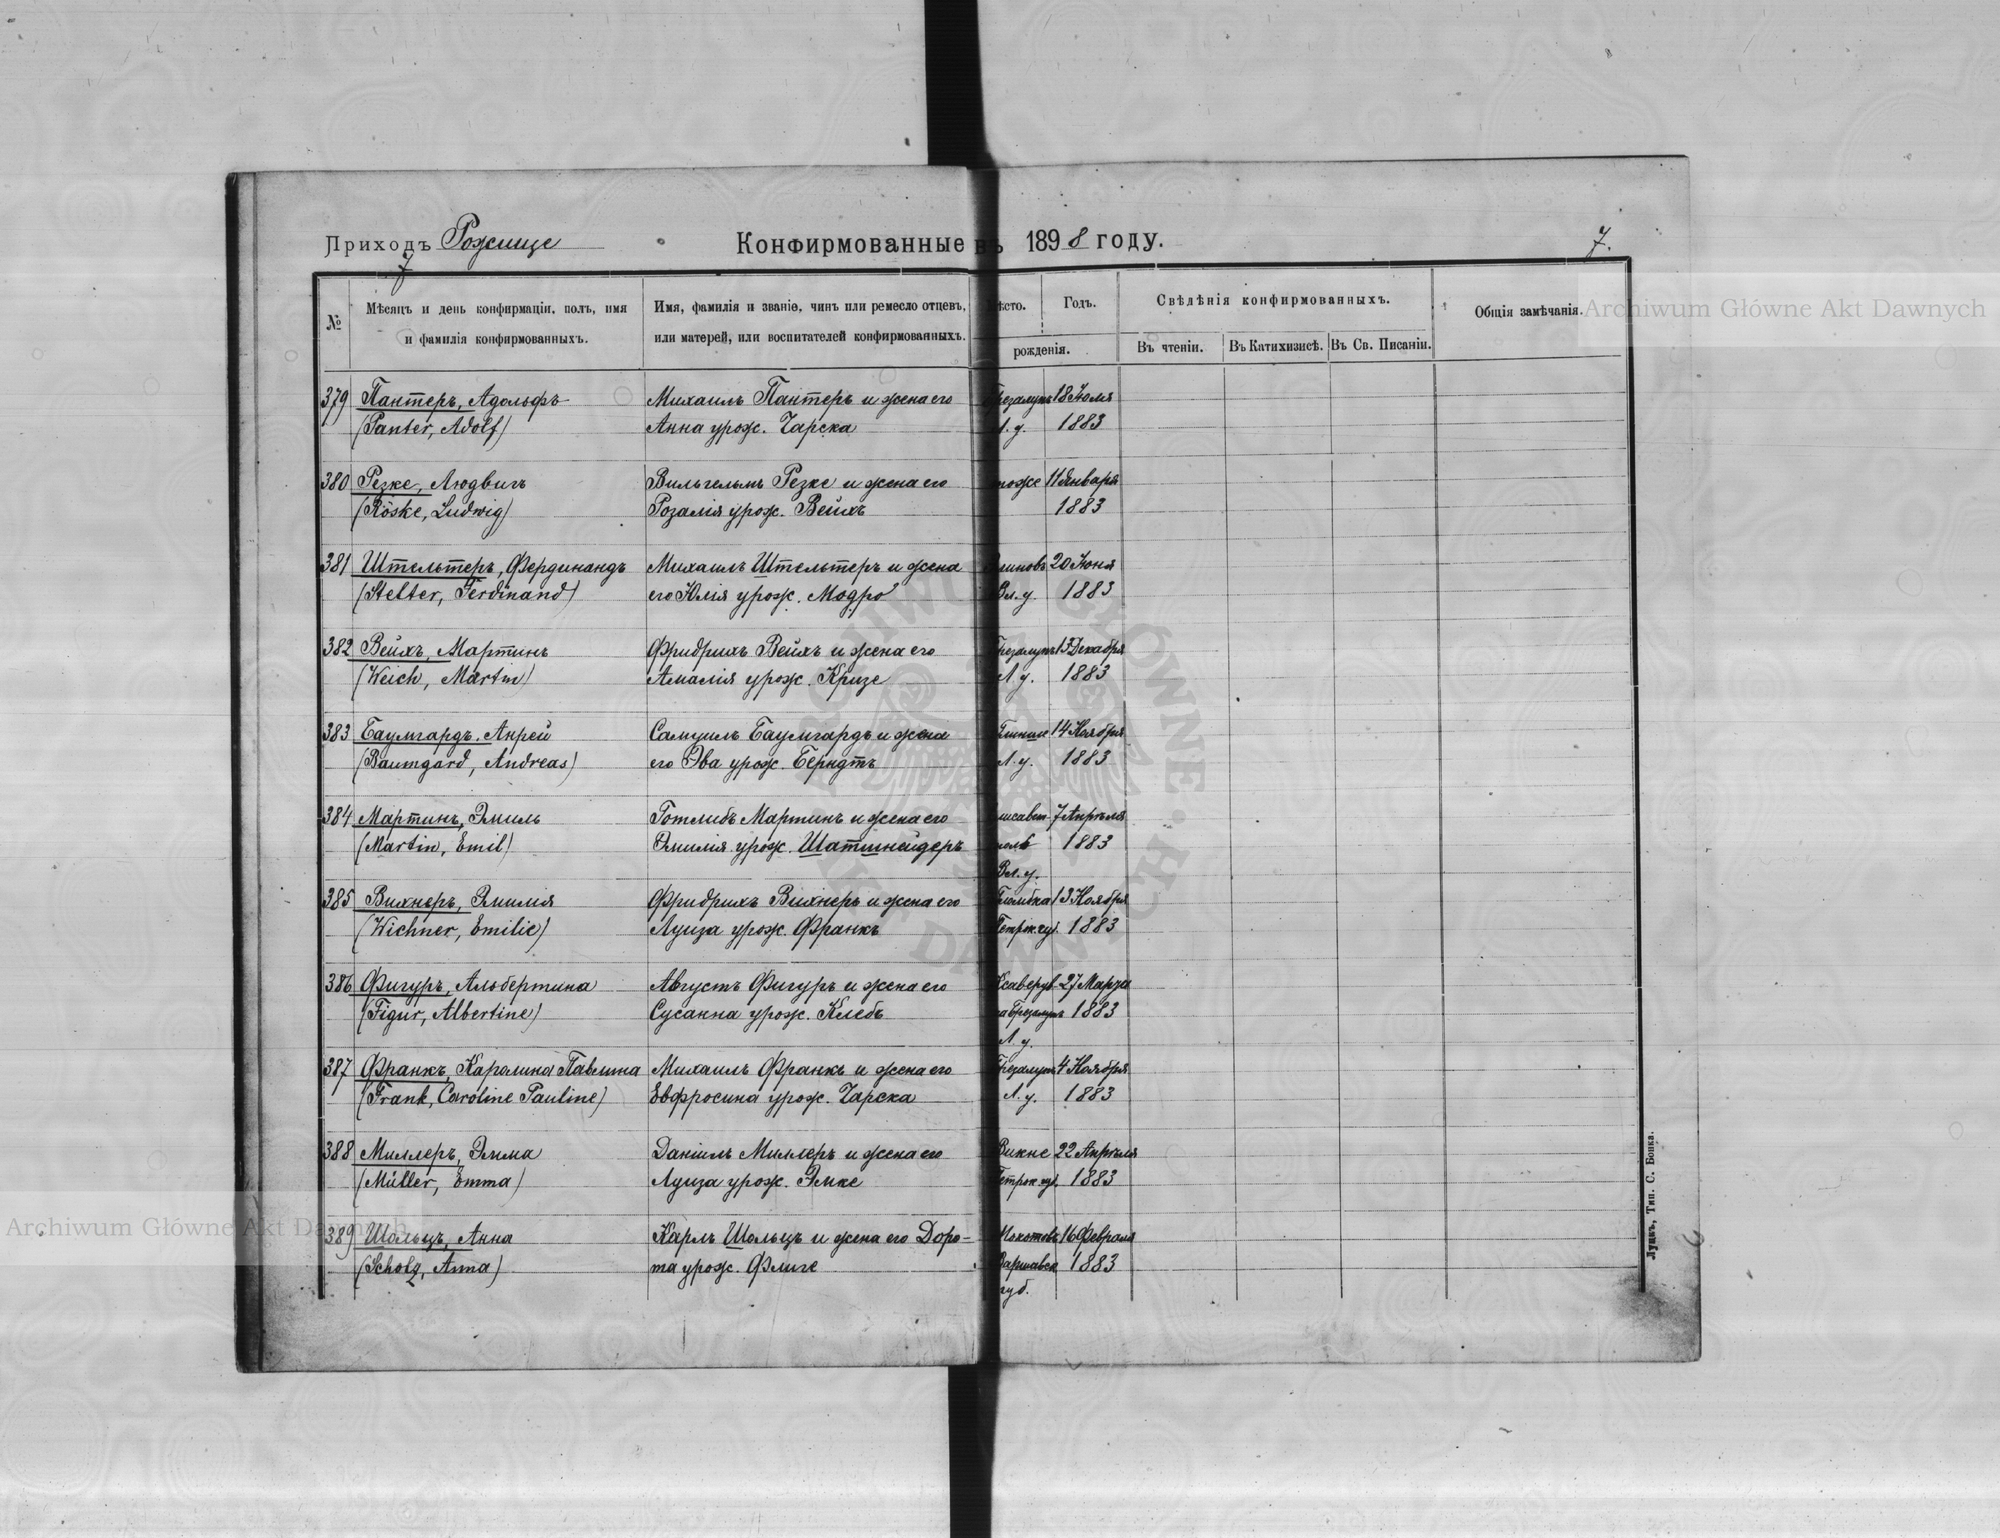 Приходъ Рожище
Конфирмованные въ 1898 году.
7.
7
№
Мѣсяцъ и день конфирмаціи, полъ, имя
и фамилія конфирмованныхъ.
Имя, фамилія и званіе, чинъ или ремесло отцевъ,
или матерей, или воспитателей конфирмованныхъ.
Мѣсто.
Годъ.
рожденія.
Свѣдѣнія конфирмованныхъ.
Въ чтеніи.
Въ Катихизисѣ.
Въ Св. Писаніи.
Общія замѣчанія.
379 Пантеръ, Адольфъ Михаилъ Пантеръ и жена его 18 Юля
(Panter, Adolf) Анна урож. Чарска Л. у. 1883
380 Резке, Людвигъ Вильгельмъ Резке и жена его тоже 11 Января
(Röske, Ludwig) Розалія урож. Вейхъ 1883
381 Штельтеръ, Фердинандъ Михаилъ Штельтеръ и жена 20 Юня
(Stelter, Ferdinand) его Юлія урож. Модро Вл. у. 1883
382 Вейхъ, Мартинъ Фридрихъ Вейхъ и жена его 13 Декабря
(Weich, Martin) Амалія урож. Кризе Л. у. 1883
383 Баумгардъ, Анрей Самуилъ Баумгардъ и жена 14 Ноября
(Baumgard, Andreas) его Эва урож. Берндтъ Л. у. 1883
384 Мартинъ, Эмиль Готлибъ Мартинъ и жена его 7 Апрѣля
(Martin, Emil) Эмилія урож. Шатшнейдеръ 1883
Вл. у.
385 Вихнеръ, Эмилія Фридрихъ Вихнеръ и жена его 13 Ноября
(Wichner, Emilie) Луиза урож. Франкъ Петрок. губ. 1883
386 Фигуръ, Альбертина Августъ Фигуръ и жена его 27 Марза
(Figur, Albertine) Сусанна урож. Клебъ 1883
Л. у.
387 Франкъ, Каролина Павлина Михаилъ Франкъ и жена его 4 Ноября
(Frank, Caroline Pauline) Евфросина урож. Чарска Л. у. 1883
388 Миллеръ, Эмма Даніилъ Миллеръ и жена его 22 Апрѣля
(Müller, Emma) Луиза урож. Эмке Петрок. губ. 1883
389 Шольцъ, Анна Карлъ Шольцъ и жена его Доро- 16 Февраля
(Scholz, Anna) та урож. Флиге Варшавск 1883
губ.
Луцкъ, Тип. С. Бонка.
Archiwum Główne Akt Dawnych
Archiwum Główne Akt Dawnych
ARCHIWUM GŁÓWNE AKT DAWNYCH